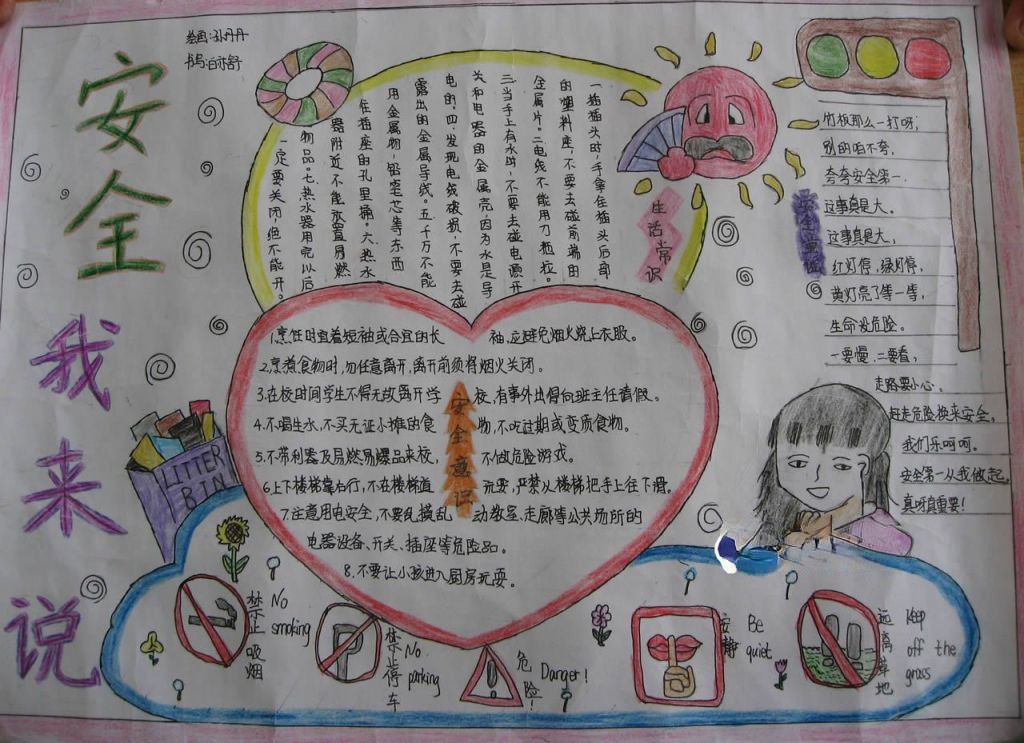 安全我来说
绘画:孙丹丹
书写:白亦舒
一.插插头时,手拿在插头后部
的塑料座,不要去碰前端的
金属片。二.电线不能用力拖拉。
三.当手上有水时,不要去碰电源开
关和电器的金属壳,因为水是导
电的。四.发现电线破损,不要去碰
露出的金属导线。五.千万不能
用金属物,铅笔芯等东西
在插座的孔里捅。六.热水
器附近不能放置易燃
物品。七.热水器用完以后
一定要关闭,但不能开。
生活常识
竹板那么一打呀,
别的咱不夸,
夸夸安全第一,
这事真是大。
这事真是大,
红灯停,绿灯停,
黄灯亮了等一等,
生命没危险。
一要慢,二要看,
走路要小心。
赶走危险换来安全,
我们乐呵呵。
安全第一从我做起,
真呀真重要!
1.烹饪时宜着短袖或合宜的长袖,应避免烟火烧上衣服。
2.烹煮食物时,勿任意离开,离开前须将烟火关闭。
3.在校时间学生不得无故离开学校,有事外出得向班主任请假。
4.不喝生水,不买无证小摊的食物,不吃过期或变质食物。
5.不带利器及易燃易爆品来校,不做危险游戏。
6.上下楼梯靠右行,不在楼梯道玩耍,严禁从楼梯把手上往下滑。
7.注意用电安全,不要乱搞乱动教室、走廊等公共场所的
电器设备、开关、插座等危险品。
8.不要让小孩进入厨房玩耍。
安全意识
LITTER
BIN
禁止吸烟
No
smoking
禁止停车
No
parking
危险!
Danger!
安静
Be
quiet
远离草地
keep
off the
grass